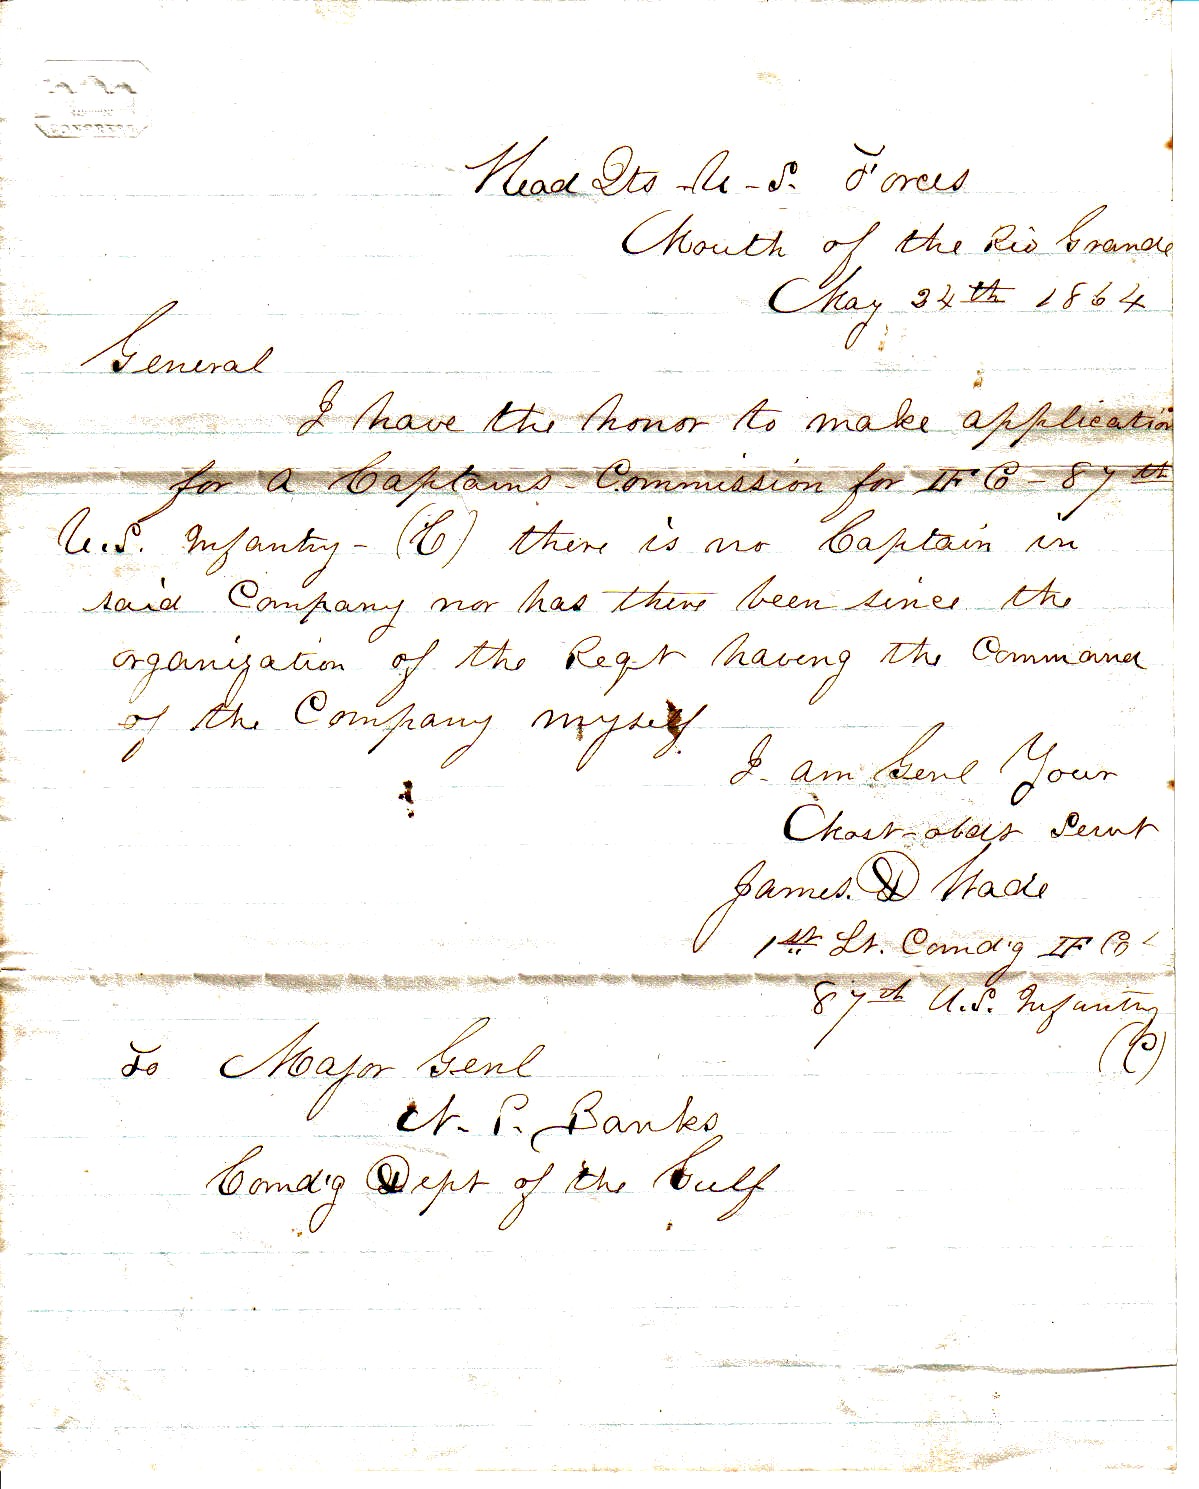 Head Qts - U - S. Forces
Mouth of the Rio Grande
May 24th 1864
General
I have the honor to make application
for a Captains - Commission for "F" Co - 87th
U.S. Infantry - (C) there is no Captain in
said Company nor has there been since the
organization of the Reg't having the Command
of the Company myself.
I am Genl Your
Most - obdt Servt
James. D Wade
1st Lt. Comd'g "F" Co
87th U.S. Infantry
(C)
To Major Genl
N. P. Banks
Comd'g Dept of the Gulf